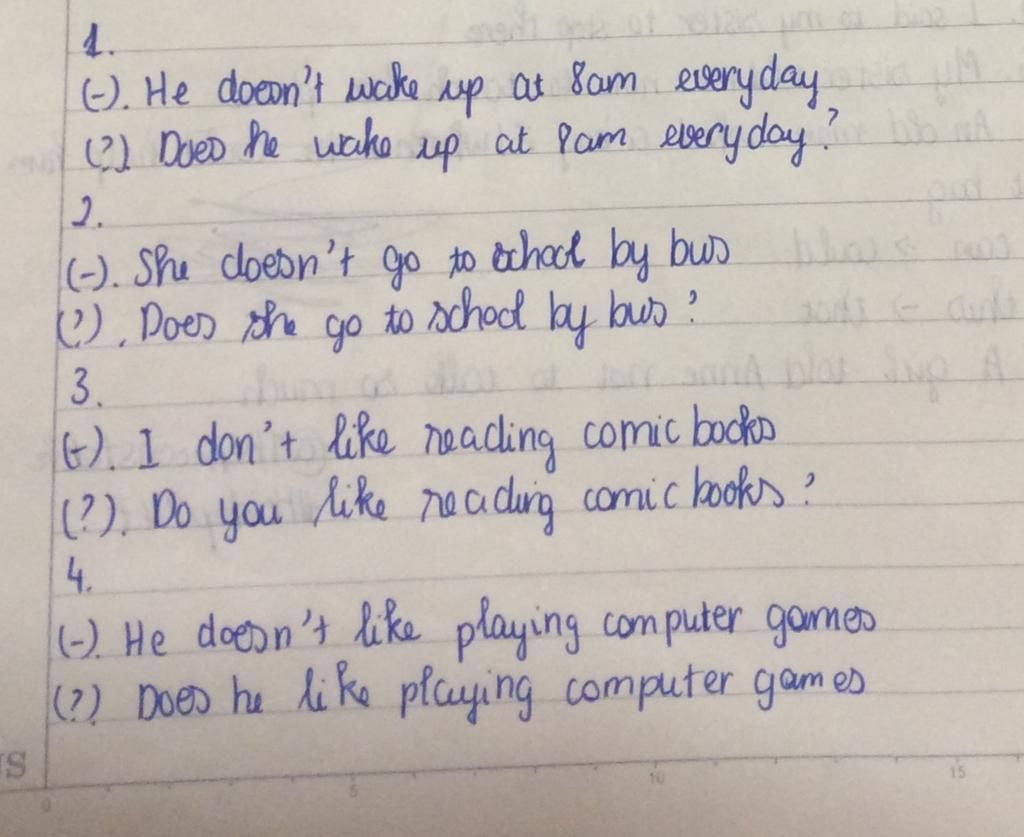 1.
(-). He doesn't wake up at 8am everyday
(?). Does he wake up at 8am everyday?
2.
(-). She doesn't go to school by bus
(?). Does she go to school by bus?
3.
(-). I don't like reading comic books
(?). Do you like reading comic books?
4.
(-). He doesn't like playing computer games
(?) Does he like playing computer games
0 5 10 15